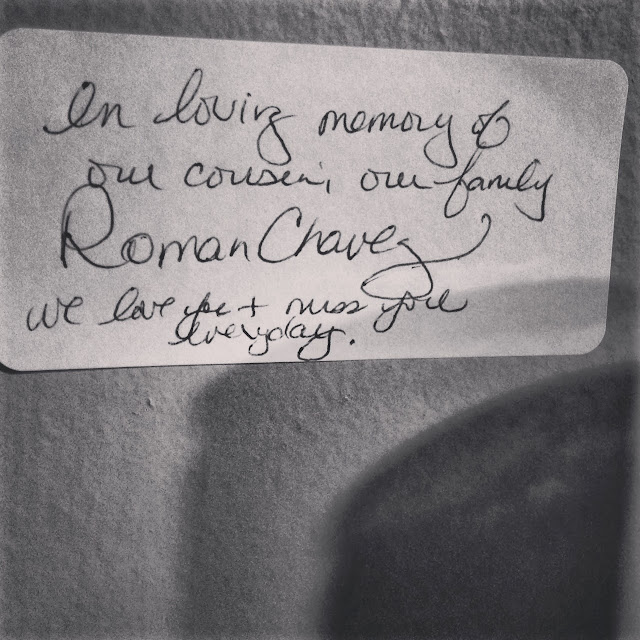 In loving memory of
our cousin, our family
Roman Chavez
we love you + miss you
everyday.